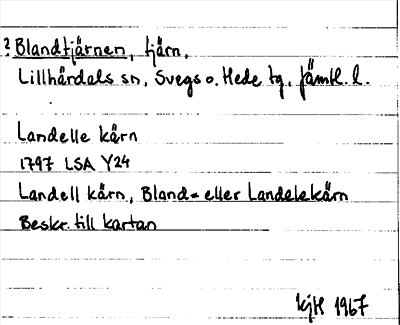 ? Blandtjärnen, tjärn.
Lillhärdals sn, Svegs o. Hede tg, Jämtl. l.
Landelle kärn
1797 LSA Y24
Landell kärn, Bland- eller Landelekärn
Beskr. till kartan
KjH 1967